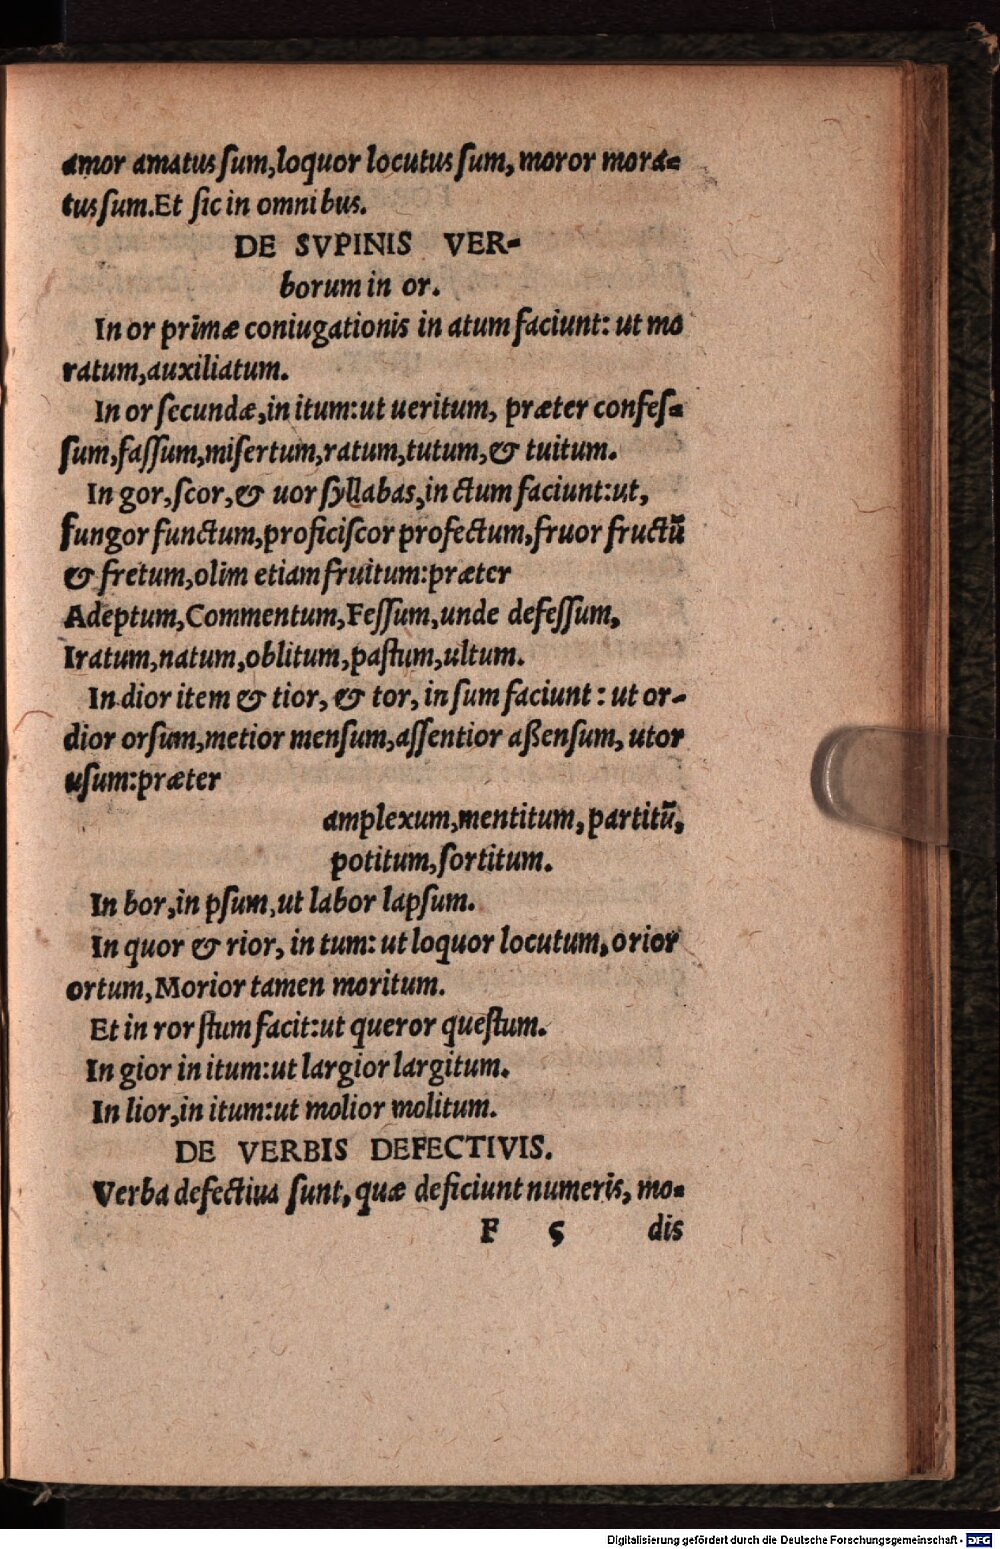 amor amatus ſum,loquor locutus ſum, moror mora=
tus ſum.Et ſic in omnibus.
DE SVPINIS VER-
borum in or.
In or primæ coniugationis in atum faciunt: ut mo
ratum,auxiliatum.
In or ſecundæ,in itum:ut ueritum, præter confeſ=
ſum,faſſum,miſertum,ratum,tutum,& tuitum.
In gor,ſcor,& uor ſyllabas,in ctum faciunt:ut,
fungor functum,proficiſcor profectum,fruor fructū
& fretum,olim etiam fruitum:præter
Adeptum,Commentum,Feſſum,unde defeſſum,
Iratum,natum,oblitum,paſtum,ultum.
In dior item & tior, & tor, in ſum faciunt : ut or-
dior orſum,metior menſum,aſſentior aßenſum, utor
uſum:præter
amplexum,mentitum, partitū,
potitum,ſortitum.
In bor,in pſum,ut labor lapſum.
In quor & rior, in tum: ut loquor locutum,orior
ortum,Morior tamen moritum.
Et in ror ſtum facit:ut queror queſtum.
In gior in itum:ut largior largitum.
In lior,in itum:ut molior molitum.
DE VERBIS DEFECTIVIS.
Verba defectiua ſunt, quæ deficiunt numeris, mo=
F 5 dis
Digitalisierung gefördert durch die Deutsche Forschungsgemeinschaft - DFG